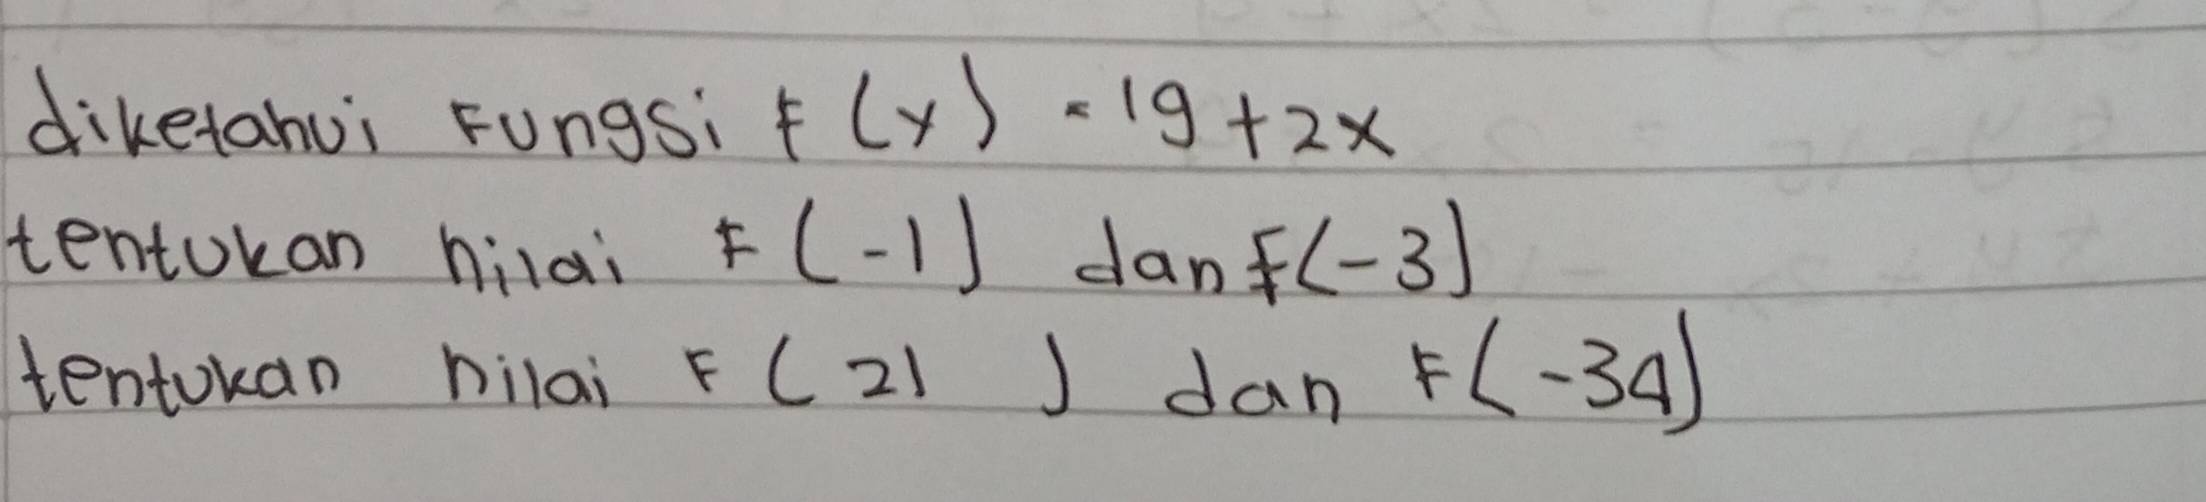 diketahui Fungsi F (x) = 19 + 2x
tentukan nilai F (-1) dan F(-3)
tentukan nilai F (21 ) dan F(-34)